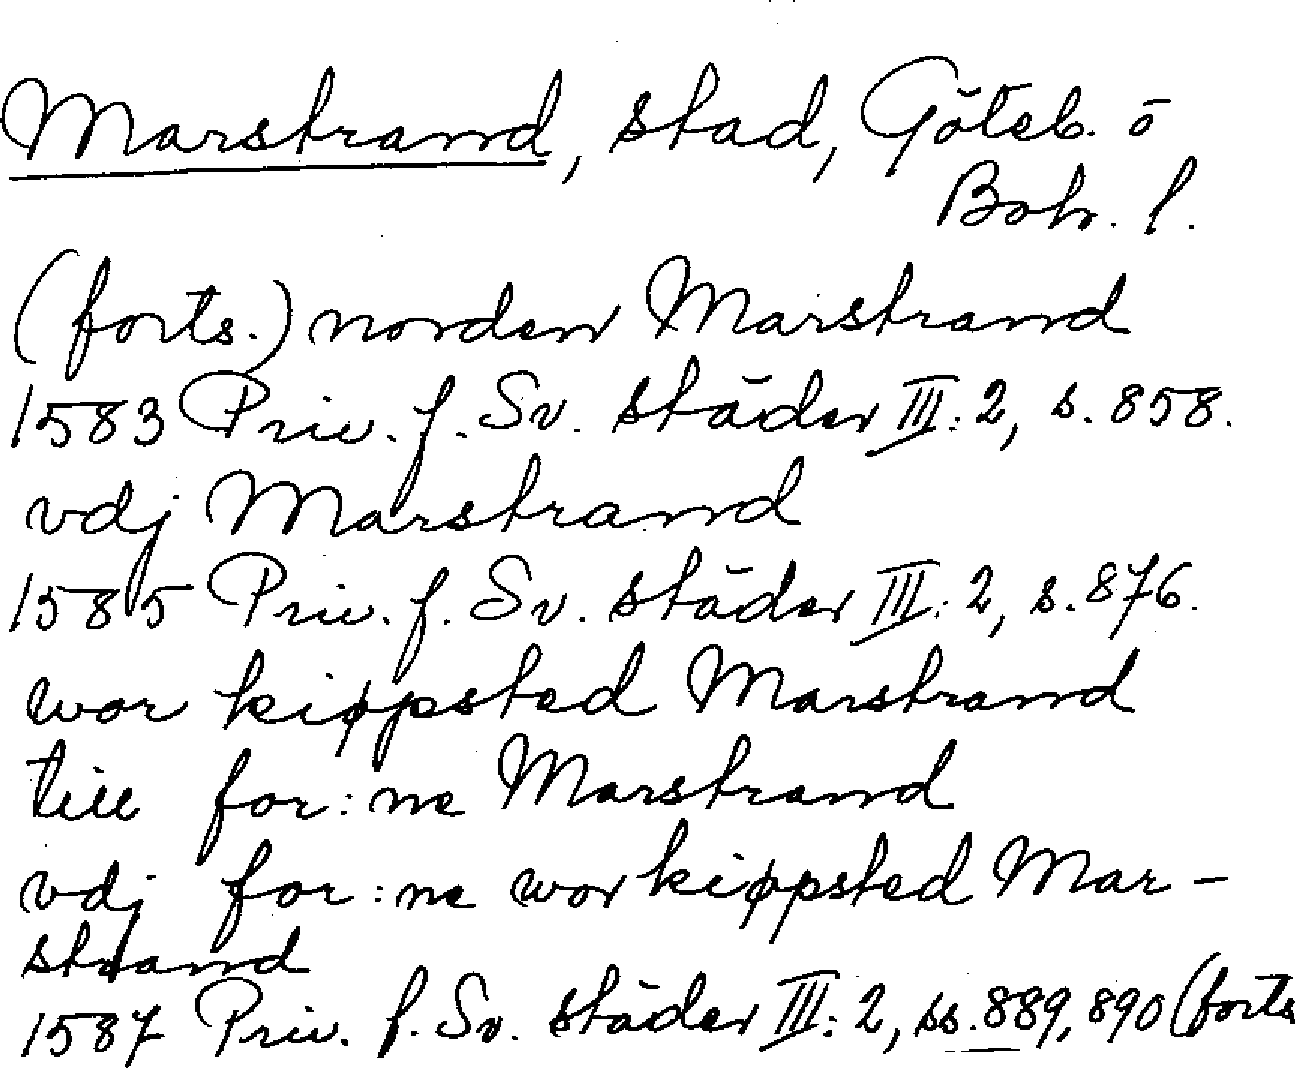 Marstrand, stad, Göteb. o
Boh. l.
(forts.) norden Marstrand
1583 Priv. f. Sv. städer III:2, s. 858.
vdj Marstrand
1585 Priv. f. Sv. städer III:2, s. 876.
wor kiøpsted Marstrand
till for:ne Marstrand
vdj for:ne wor kiøpsted Mar-
strand
1587 Priv. f. Sv. städer III:2, ss. 889, 890 (forts